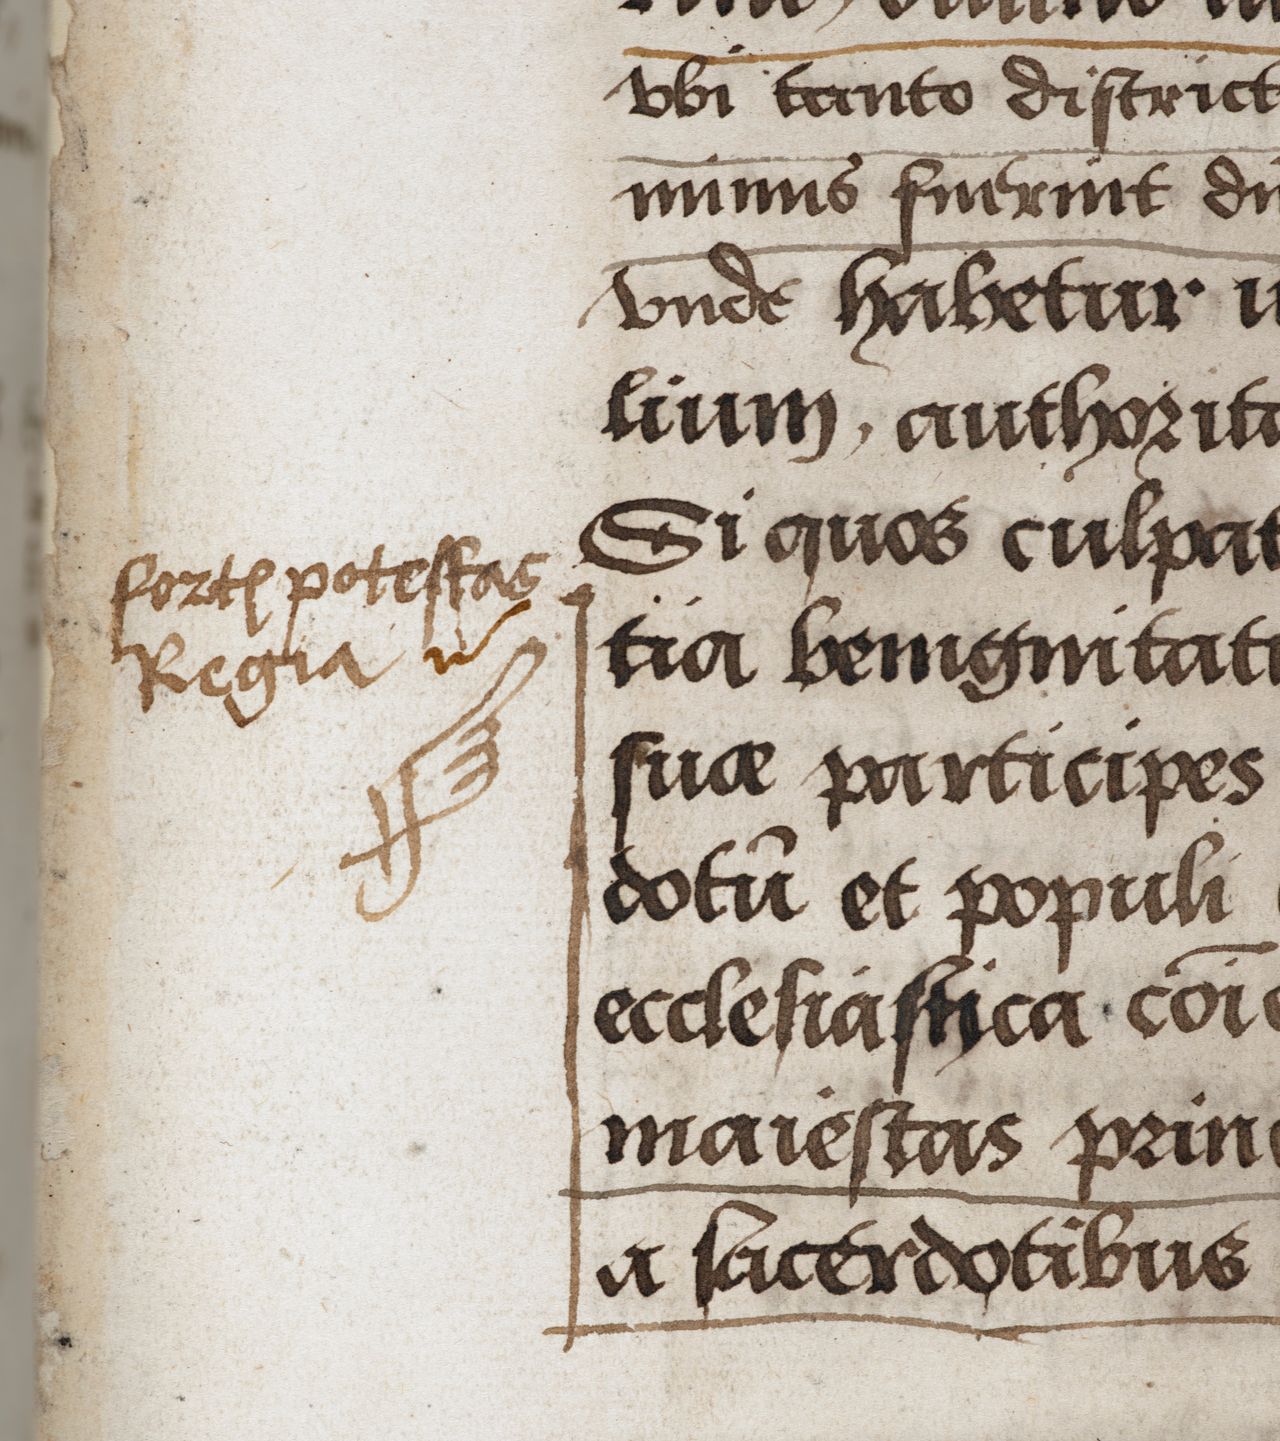 vbi tanto district
minus fuerint
vnde habetur
lium, authorita
Si quos culpat
tia benignitat
suæ participes
dotū et populi
ecclesiastica cōi
maiestas prin
a sacerdotibus
potestas
Regia